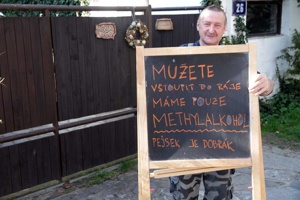 26
MŮŽETE
VSTOUPIT DO RÁJE
MÁME POUZE
METHYLALKOHOL
PEJSEK JE DOBRÁK